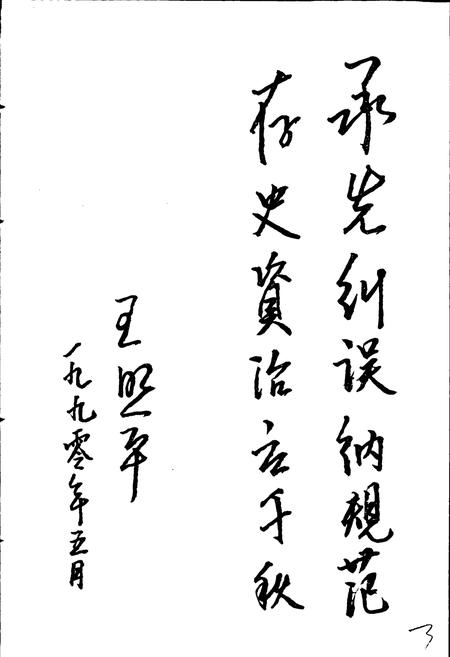 承先纠误纳規范
存史資治立千秋
王照平
一九九零年五月
3